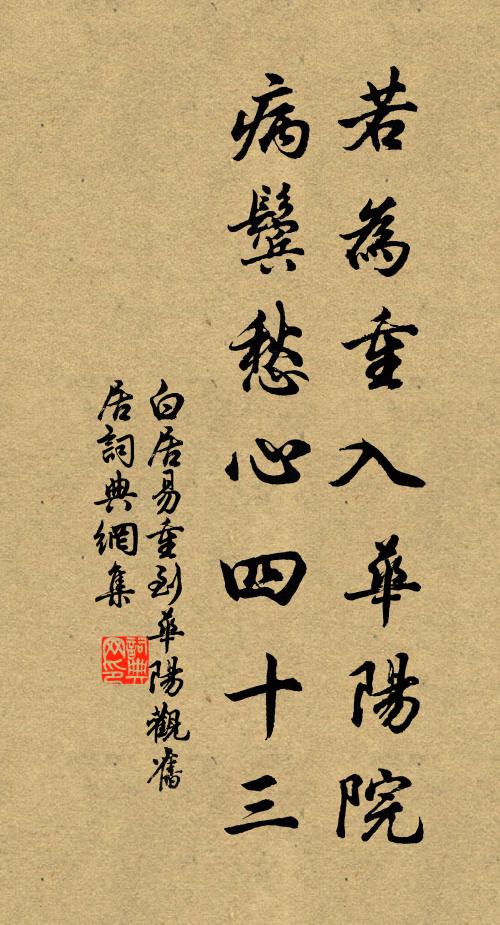 若為重入華陽院
病鬢愁心四十三
白居易重到華陽觀舊
居詞典網集
詞典
网印